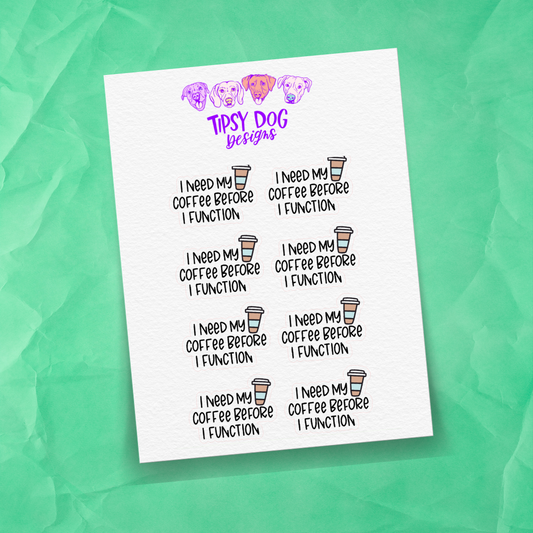 TIPSY DOG
Designs
I NEED MY
COFFEE BEFORE
I FUNCTION
I NEED MY
COFFEE BEFORE
I FUNCTION
I NEED MY
COFFEE BEFORE
I FUNCTION
I NEED MY
COFFEE BEFORE
I FUNCTION
I NEED MY
COFFEE BEFORE
I FUNCTION
I NEED MY
COFFEE BEFORE
I FUNCTION
I NEED MY
COFFEE BEFORE
I FUNCTION
I NEED MY
COFFEE BEFORE
I FUNCTION